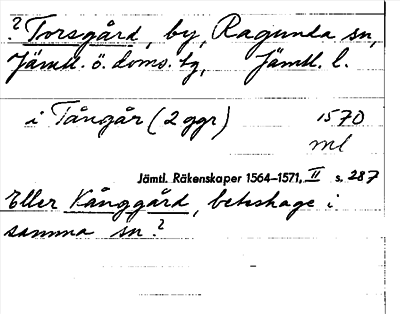 ? Torsgård, by, Ragunda sn,
Jämtl. ö. doms. tg, Jämtl. l.
i Tångår (2 ggr) 1570
ml
Jämtl. Räkenskaper 1564–1571, II s. 287
Eller Kånggård, beteshage i
samma sn?